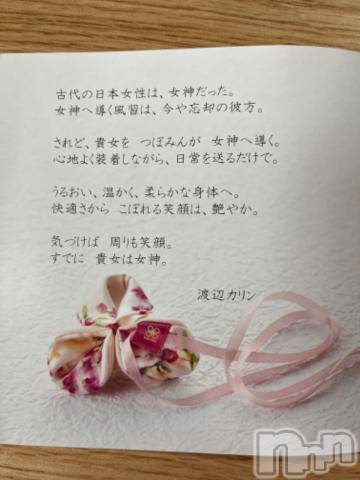 古代の日本女性は、女神だった。
女神へ導く風習は、今や忘却の彼方。
されど、貴女を つぼみんが 女神へ導く。
心地よく装着しながら、日常を送るだけで。
うるおい、温かく、柔らかな身体へ。
快適さから こぼれる笑顔は、艶やか。
気づけば 周りも笑顔。
すでに 貴女は女神。
渡辺カリン